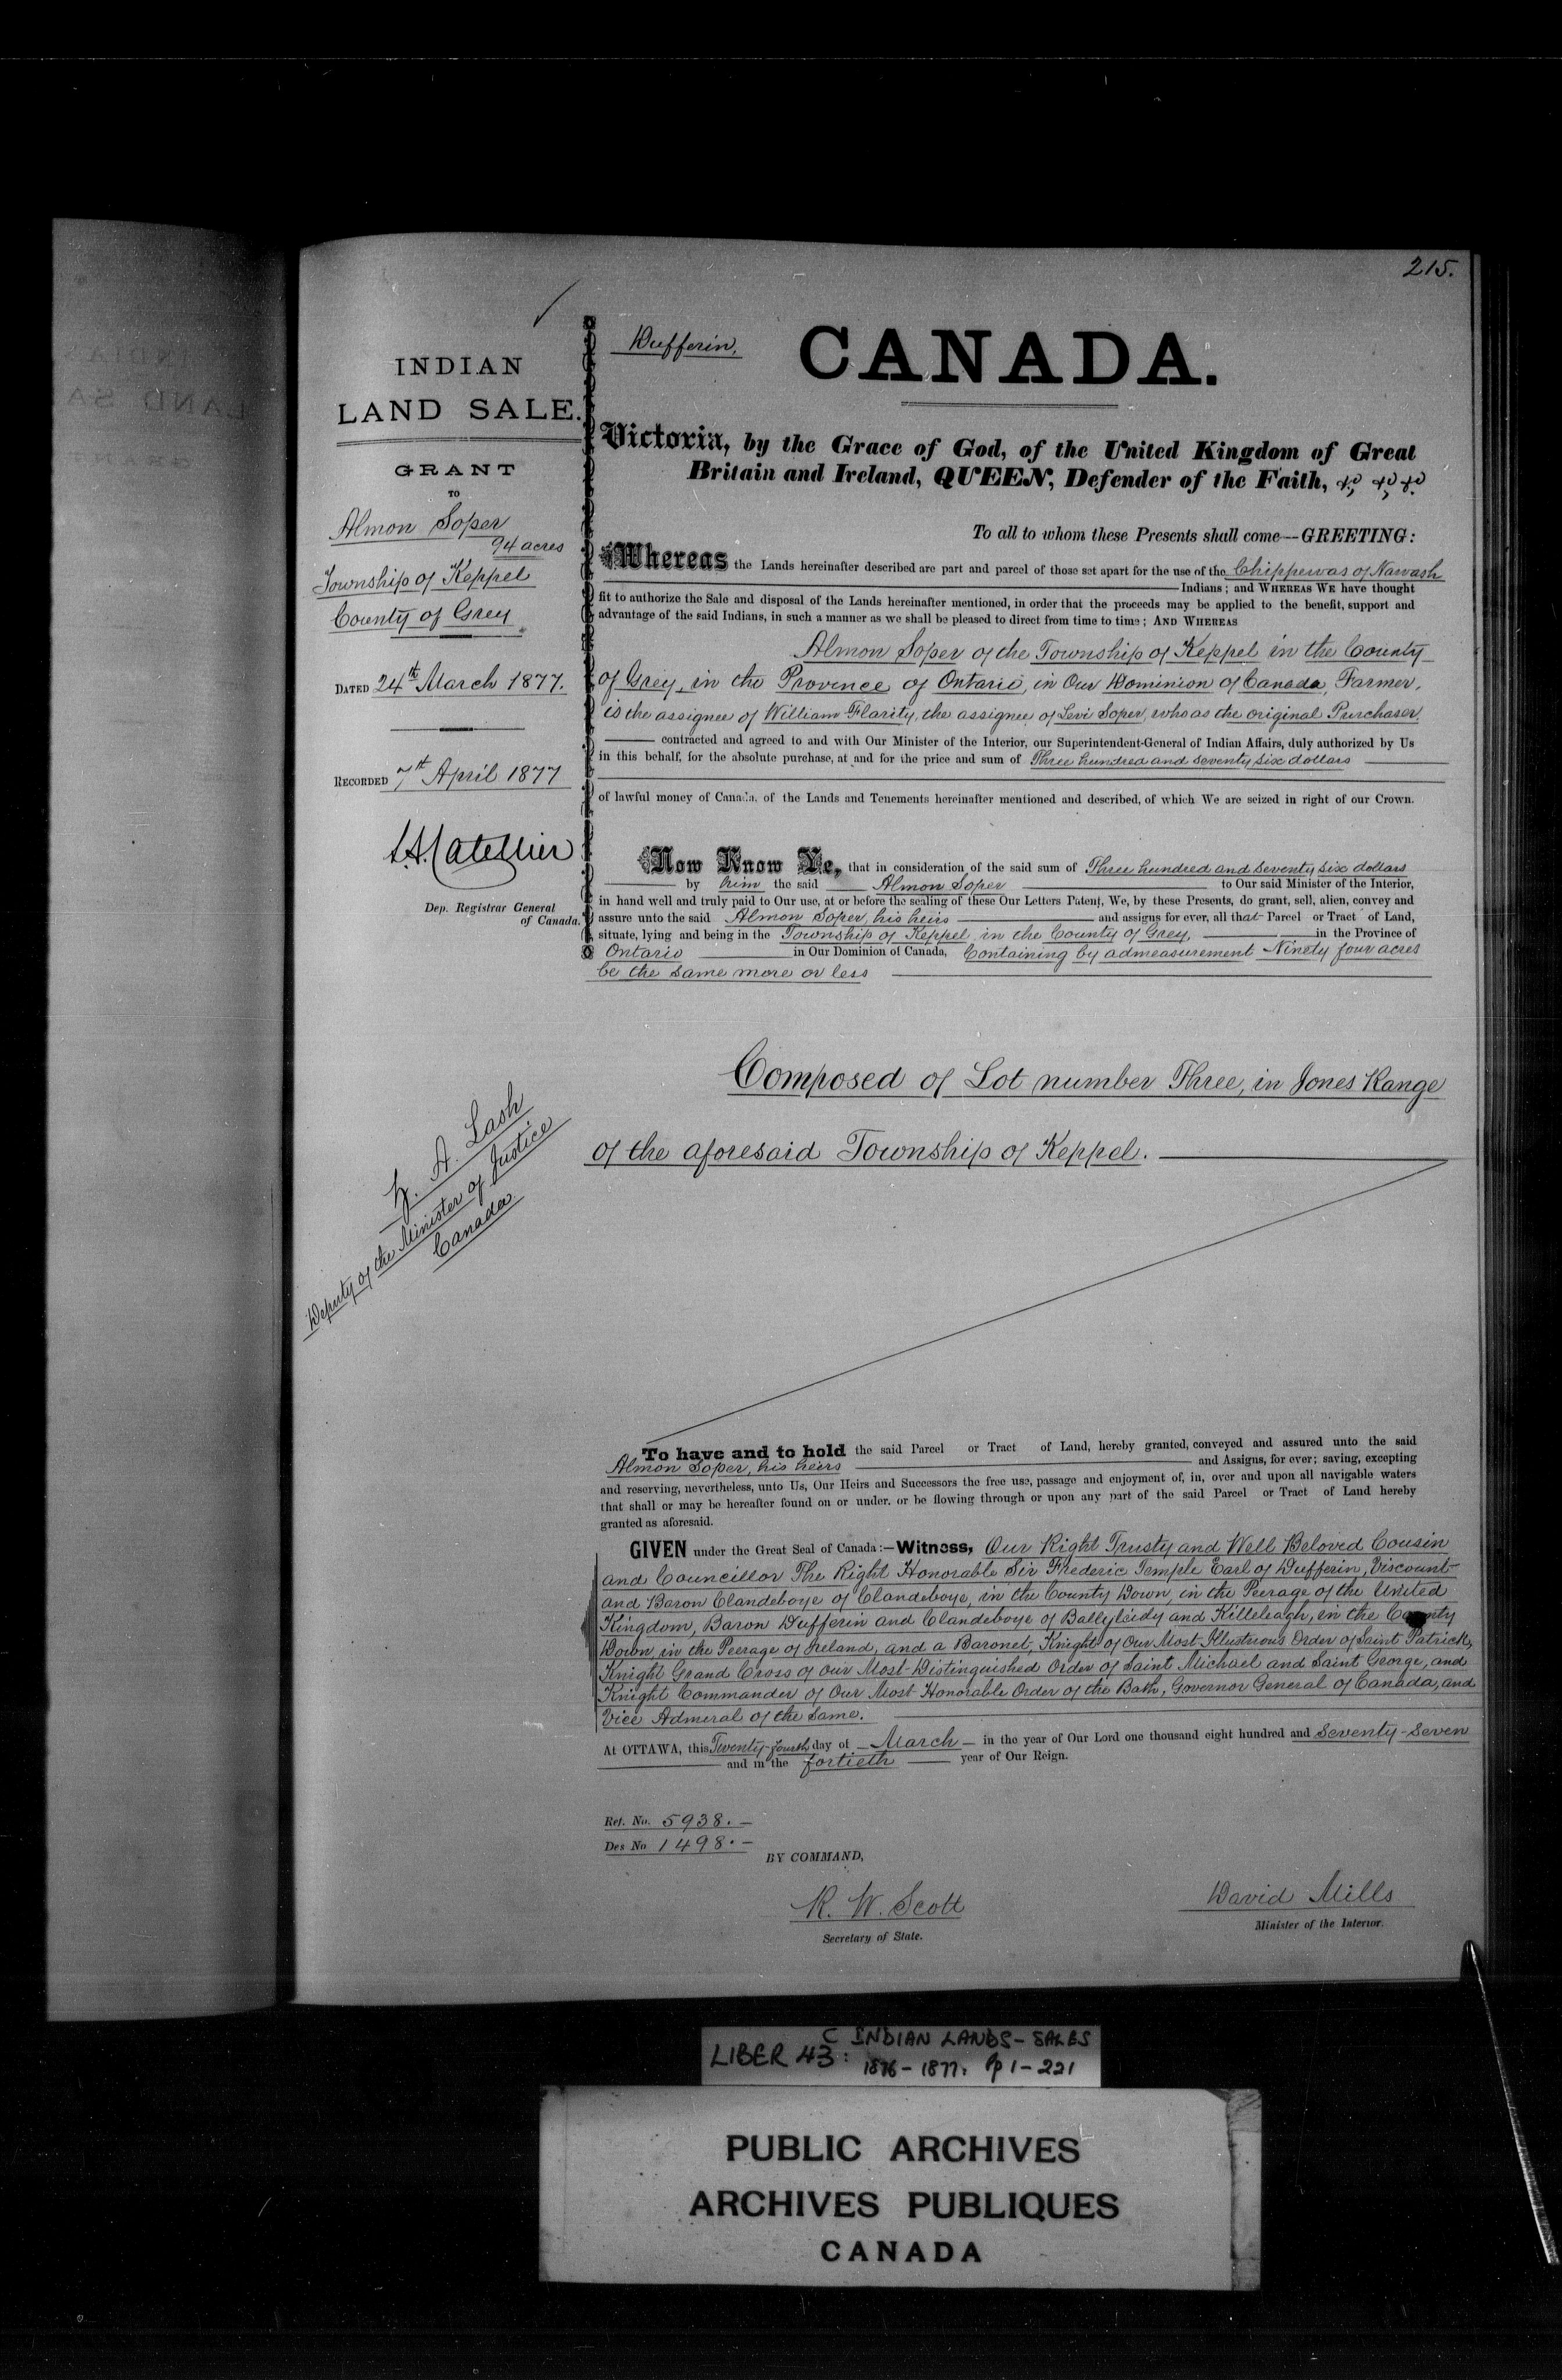 215.
INDIAN
LAND SALE.
GRANT
TO
Almon Soper
94 acres
Township of Keppel
County of Grey
DATED 24th March 1877.
RECORDED 7th April 1877
Dep. Registrar General
of Canada.
Z. A. Lash
Deputy of the Minister of Justice
Canada
Dufferin,
CANADA.
Victoria, by the Grace of God, of the United Kingdom of Great
Britain and Ireland, QUEEN, Defender of the Faith, &c, &c, &c.
To all to whom these Presents shall come—GREETING:
Whereas the Lands hereinafter described are part and parcel of those set apart for the use of the Chippewas of Nawash
Indians; and WHEREAS WE have thought
fit to authorize the Sale and disposal of the Lands hereinafter mentioned, in order that the proceeds may be applied to the benefit, support and
advantage of the said Indians, in such a manner as we shall be pleased to direct from time to time; AND WHEREAS
Almon Soper of the Township of Keppel in the County
of Grey, in the Province of Ontario, in Our Dominion of Canada, Farmer,
is the assignee of William Flarity, the assignee of Levi Soper, who as the original Purchaser
contracted and agreed to and with Our Minister of the Interior, our Superintendent-General of Indian Affairs, duly authorized by Us
in this behalf, for the absolute purchase, at and for the price and sum of Three hundred and seventy six dollars
of lawful money of Canada, of the Lands and Tenements hereinafter mentioned and described, of which We are seized in right of our Crown.
Now Know Ye, that in consideration of the said sum of Three hundred and seventy six dollars
by him the said Almon Soper to Our said Minister of the Interior,
in hand well and truly paid to Our use, at or before the sealing of these Our Letters Patent, We, by these Presents, do grant, sell, alien, convey and
assure unto the said Almon Soper, his heirs and assigns for ever, all that Parcel or Tract of Land,
situate, lying and being in the Township of Keppel, in the County of Grey, in the Province of
Ontario in Our Dominion of Canada, Containing by admeasurement Ninety four acres
be the same more or less
Composed of Lot number Three, in Jones Range
of the aforesaid Township of Keppel.
To have and to hold the said Parcel or Tract of Land, hereby granted, conveyed and assured unto the said
Almon Soper, his heirs and Assigns, for ever; saving, excepting
and reserving, nevertheless, unto Us, Our Heirs and Successors the free use, passage and enjoyment of, in, over and upon all navigable waters
that shall or may be hereafter found on or under, or be flowing through or upon any part of the said Parcel or Tract of Land hereby
granted as aforesaid.
GIVEN under the Great Seal of Canada:—Witness, Our Right Trusty and Well Beloved Cousin
and Councillor The Right Honorable Sir Frederic Temple Earl of Dufferin, Viscount
and Baron Clandeboye of Clandeboye, in the County Down, in the Peerage of the United
Kingdom, Baron Dufferin and Clandeboye of Ballyleidy and Killeleagh, in the County
Down, in the Peerage of Ireland, and a Baronet, Knight of Our Most Illustrious Order of Saint Patrick,
Knight Grand Cross of Our Most Distinguished Order of Saint Michael and Saint George, and
Knight Commander of Our Most Honorable Order of the Bath, Governor General of Canada, and
Vice Admiral of the same.
At OTTAWA, this Twenty-fourth day of March in the year of Our Lord one thousand eight hundred and seventy-seven
and in the fortieth year of Our Reign.
Ref. No. 5938.-
Des No 1498.-
BY COMMAND,
R. W. Scott
Secretary of State.
David Mills
Minister of the Interior.
LIBER 43: C INDIAN LANDS - SALES
1876-1877. Pp 1-221
PUBLIC ARCHIVES
ARCHIVES PUBLIQUES
CANADA